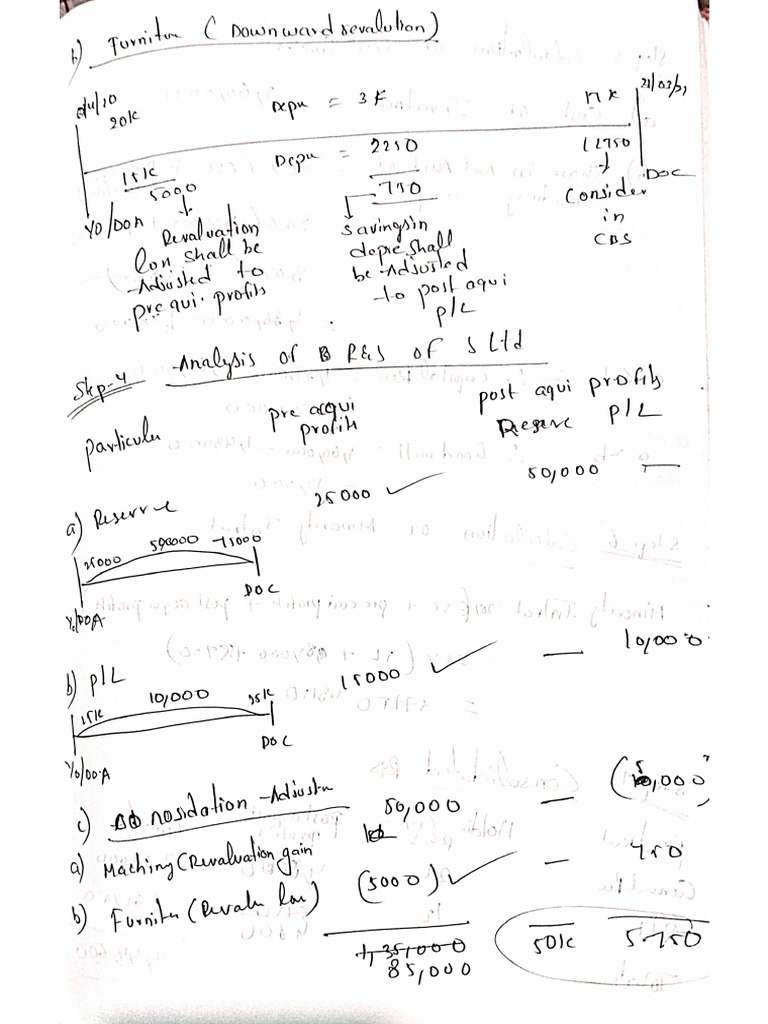 b) Furniture (Downward revalution)
20K Depn = 3K 17K 31/03/21
15K Depn = 2250 12750
5000 750 DOC
YO/DOA
Revaluation savings in Consider
lon shall be depre shall in
Adjusted to be Adjusted CBS
pre qui. profits to post aqui
p/L
Step-4 Analysis of R&S of S Ltd
particular pre acqui profits post aqui profits
Reserve p/L
a) Reserve 25000 ✓ 50,000 —
25000 50000 75000
DOC
Yo/DOA
b) p/L 15000 ✓ — 10,000
15K 10,000 25K
DOC
Yo/DOA
c) Adjustm
a) Machiny (Revaluation gain 50,000 — (5,000)
b) Furniter (Revalu lon) (5000) ✓ — 750
1,35,000
85,000 50K 5750